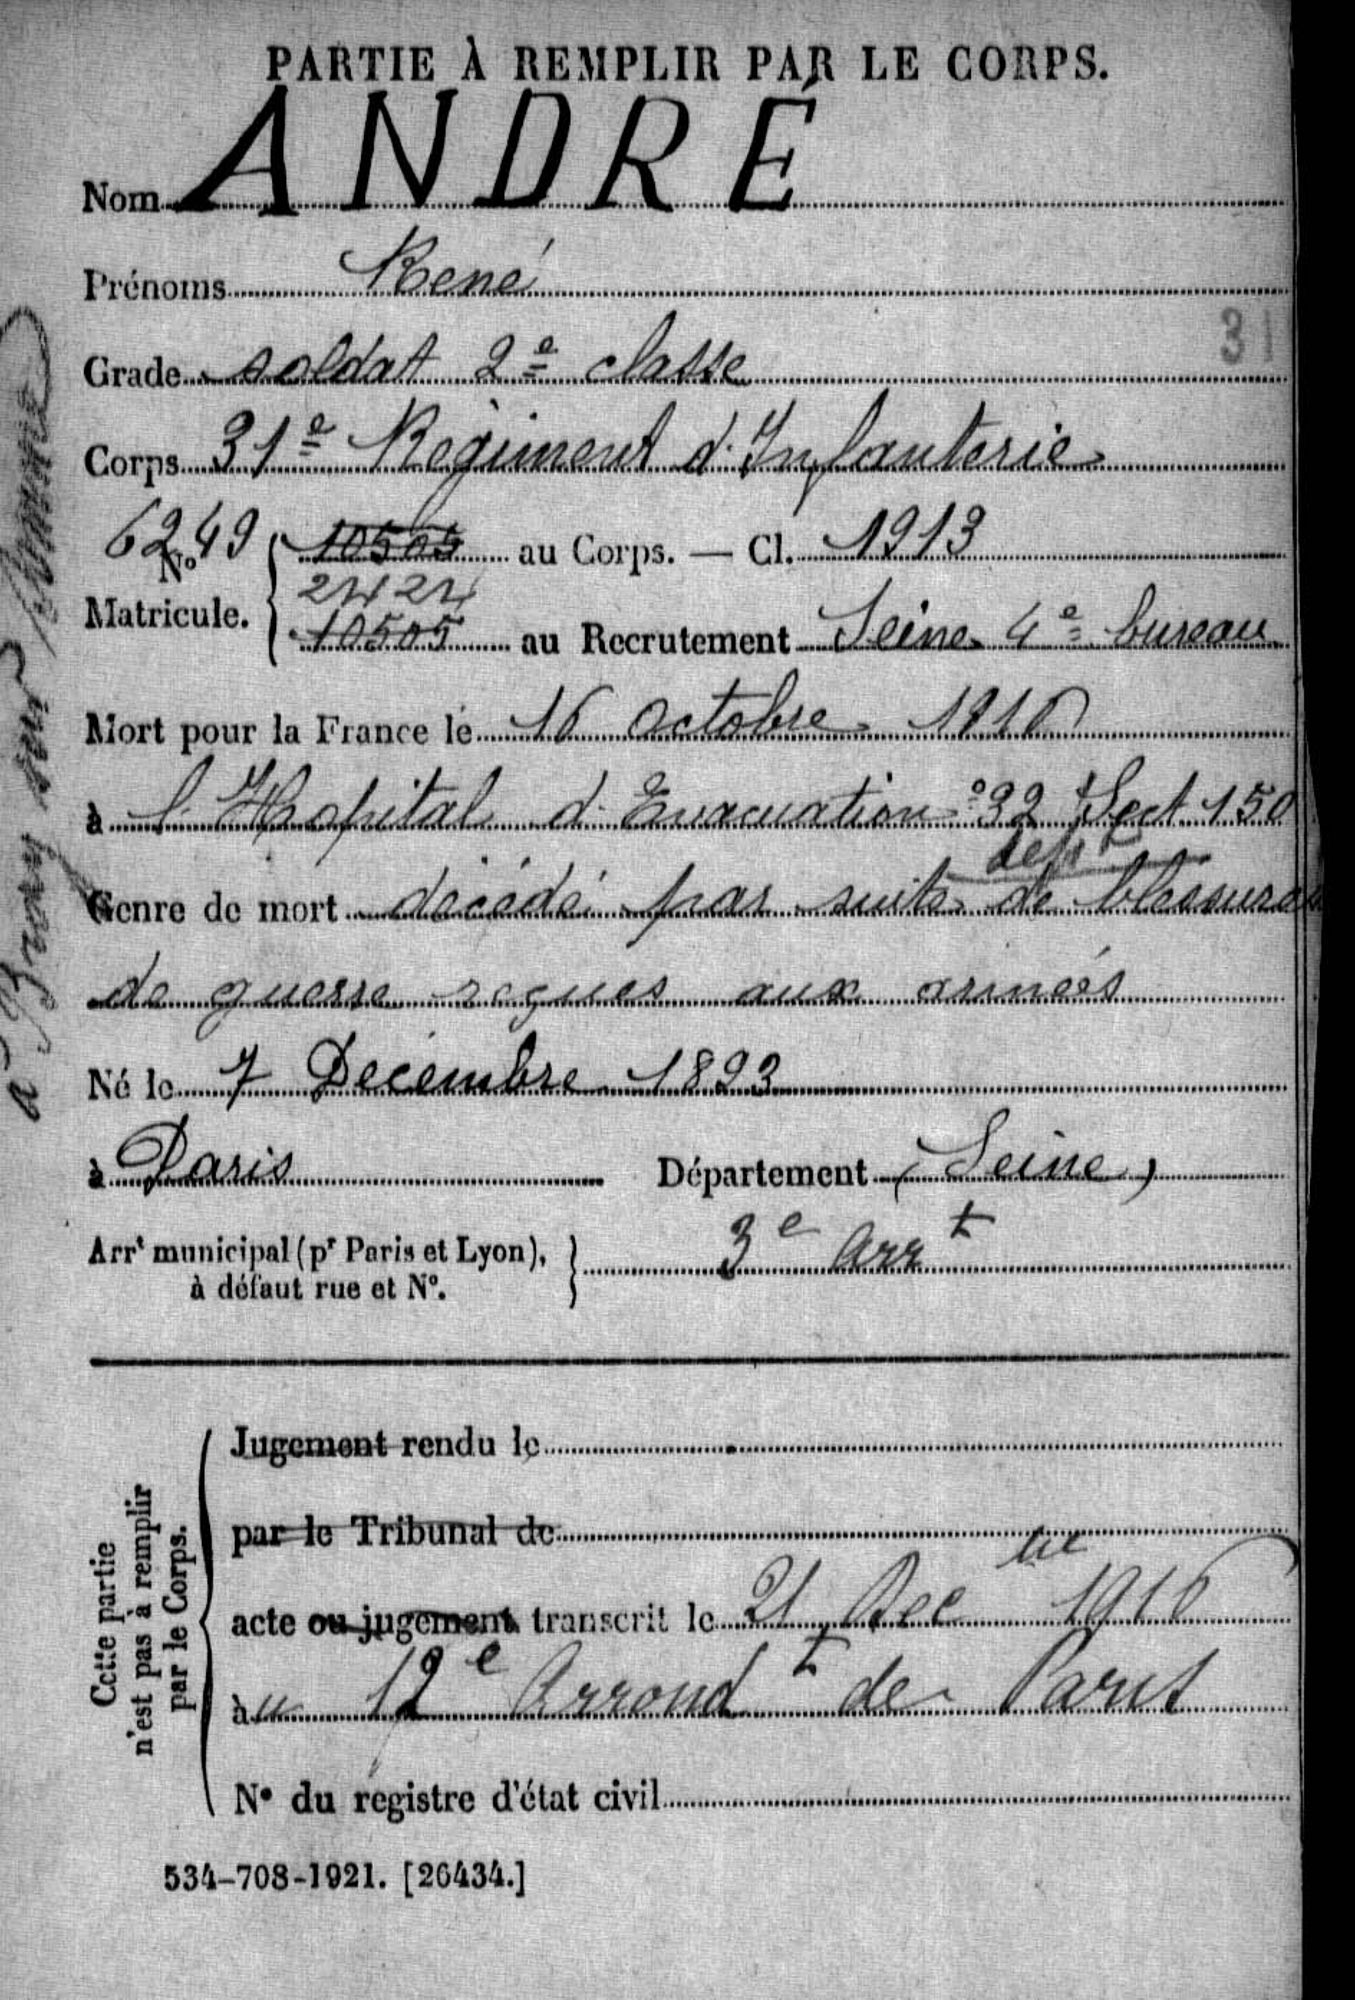 PARTIE À REMPLIR PAR LE CORPS.
Nom ANDRÉ
Prénoms René
31
Grade soldat 2e classe
Corps 31e Régiment d'Infanterie
6249
No Matricule. 10505 au Corps. — Cl. 1913
2424
10505 au Recrutement Seine 4e bureau
Mort pour la France le 16 octobre 1916
à l'Hopital d'Evacuation 32 Sect 150
Genre de mort décédé par suite de blessures
de guerre reçues aux armées
Né le 7 Décembre 1893
à Paris Département (Seine)
Arrt municipal (pr Paris et Lyon), à défaut rue et No. 3e Arrt
a Bray sur Somme
Cette partie
n'est pas à remplir
par le Corps.
Jugement rendu le
par le Tribunal de
acte ou jugement transcrit le 21 Decbre 1916
au 12e Arrondt de Paris
No du registre d'état civil
534-708-1921. [26434.]